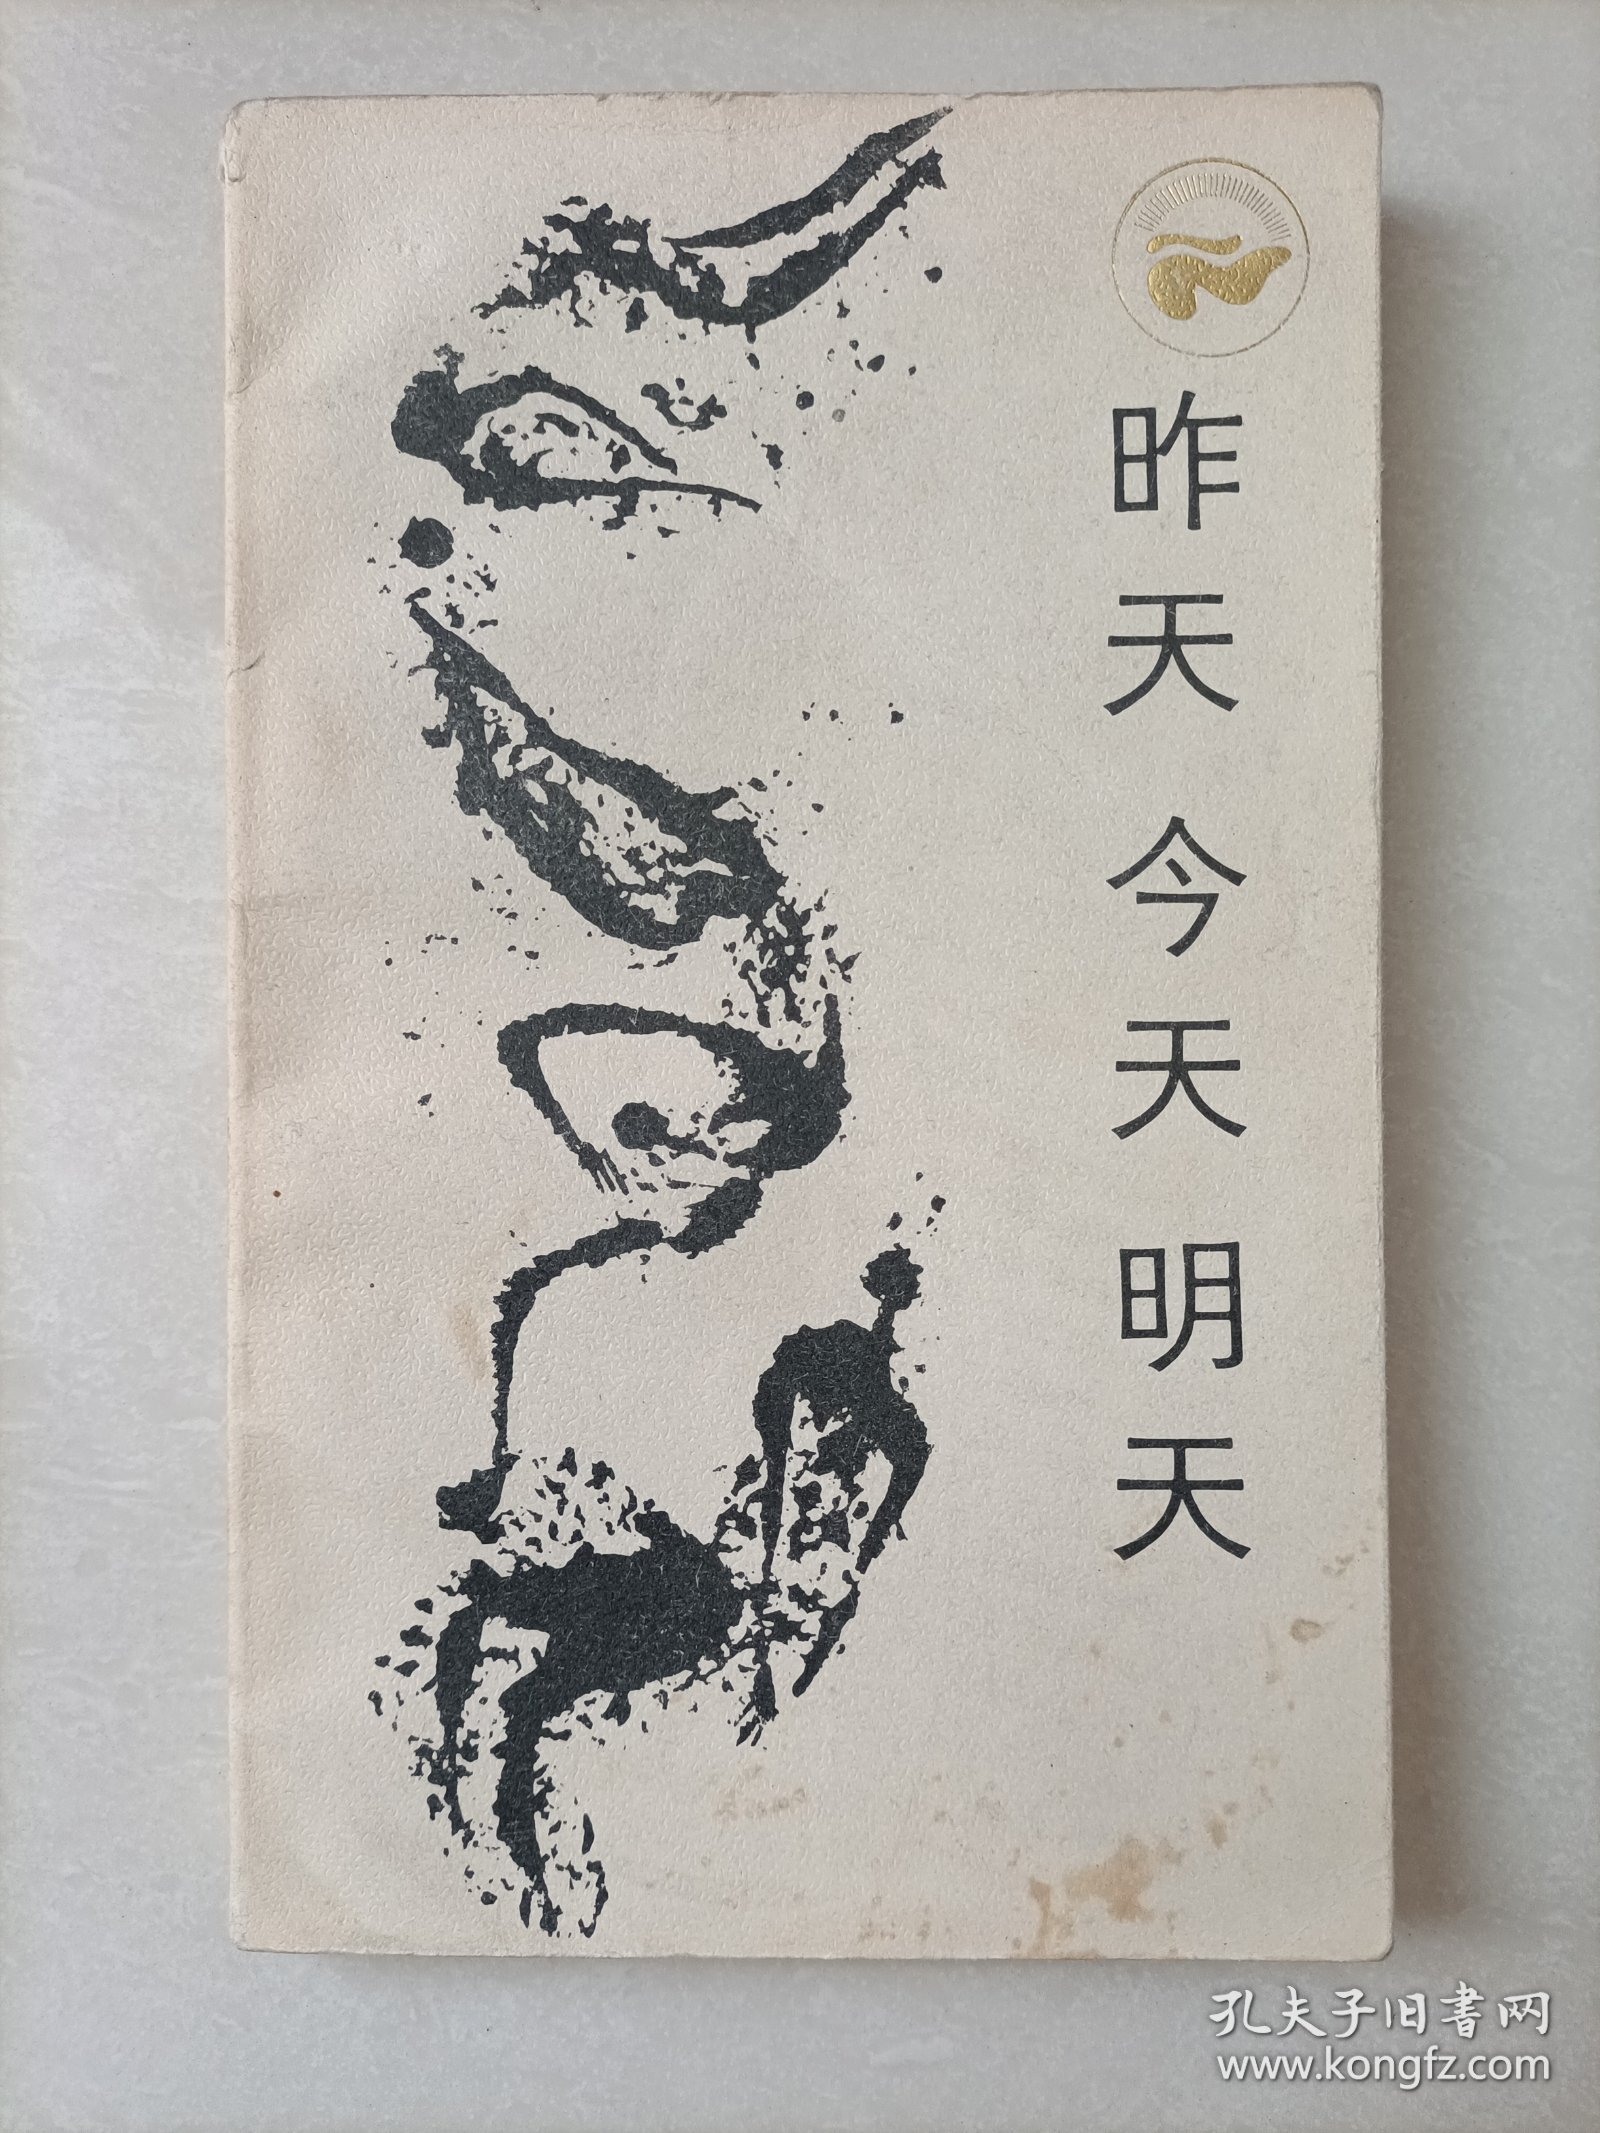 昨天今天明天
孔夫子旧书网
www.kongfz.com